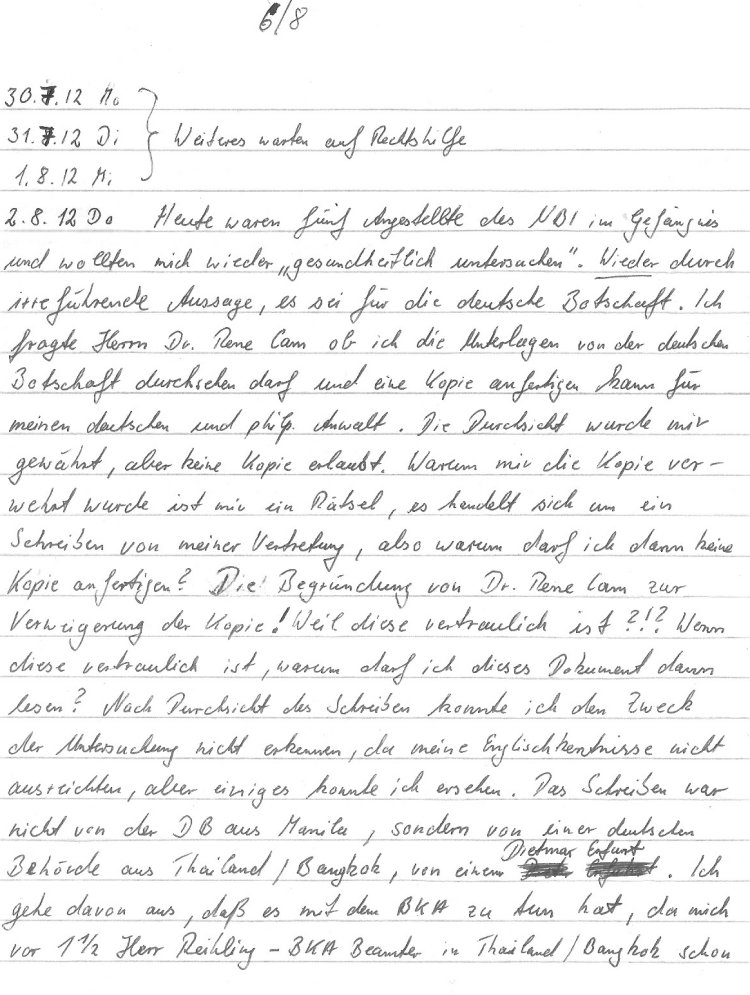 6/8
30.7.12 Mo
31.7.12 Di } Weiteres warten auf Rechtshilfe
1.8.12 Mi
2.8.12 Do Heute waren fünf Angestellte des NBI im Gefängnis
und wollten mich wieder „gesundheitlich untersuchen". Wieder durch
irreführende Aussage, es sei für die deutsche Botschaft. Ich
fragte Herrn Dr. Rene Cam ob ich die Unterlagen von der deutschen
Botschaft durchsehen darf und eine Kopie anfertigen kann für
meinen deutschen und philp. Anwalt. Die Durchsicht wurde mir
gewährt, aber keine Kopie erlaubt. Warum mir die Kopie ver-
wehrt wurde ist mir ein Rätsel, es handelt sich um ein
Schreiben von meiner Vertretung, also warum darf ich dann keine
Kopie anfertigen? Die Begründung von Dr. Rene Cam zur
Verweigerung der Kopie! Weil diese vertraulich ist?!? Wenn
diese vertraulich ist, warum darf ich dieses Dokument dann
lesen? Nach Durchsicht des Schreiben konnte ich den Zweck
der Untersuchung nicht erkennen, da meine Englischkentnisse nicht
ausreichten, aber einiges konnte ich ersehen. Das Schreiben war
nicht von der DB aus Manila, sondern von einer deutschen
Behörde aus Thailand/Bangkok, von einem Dietmar Erfurt. Ich
gehe davon aus, daß es mit dem BKA zu tun hat, da mich
vor 1 1/2 Herr Reihling - BKA Beamter in Thailand/Bangkok schon